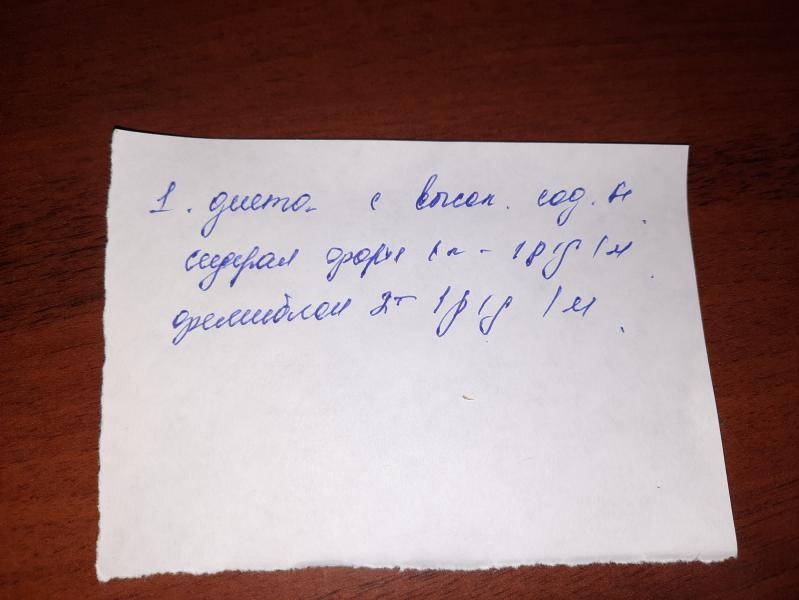 1. диета с высок. сод. б.
сидерал форте 1к - 1р/д 1м
фемибион 2т 1р/д 1м.